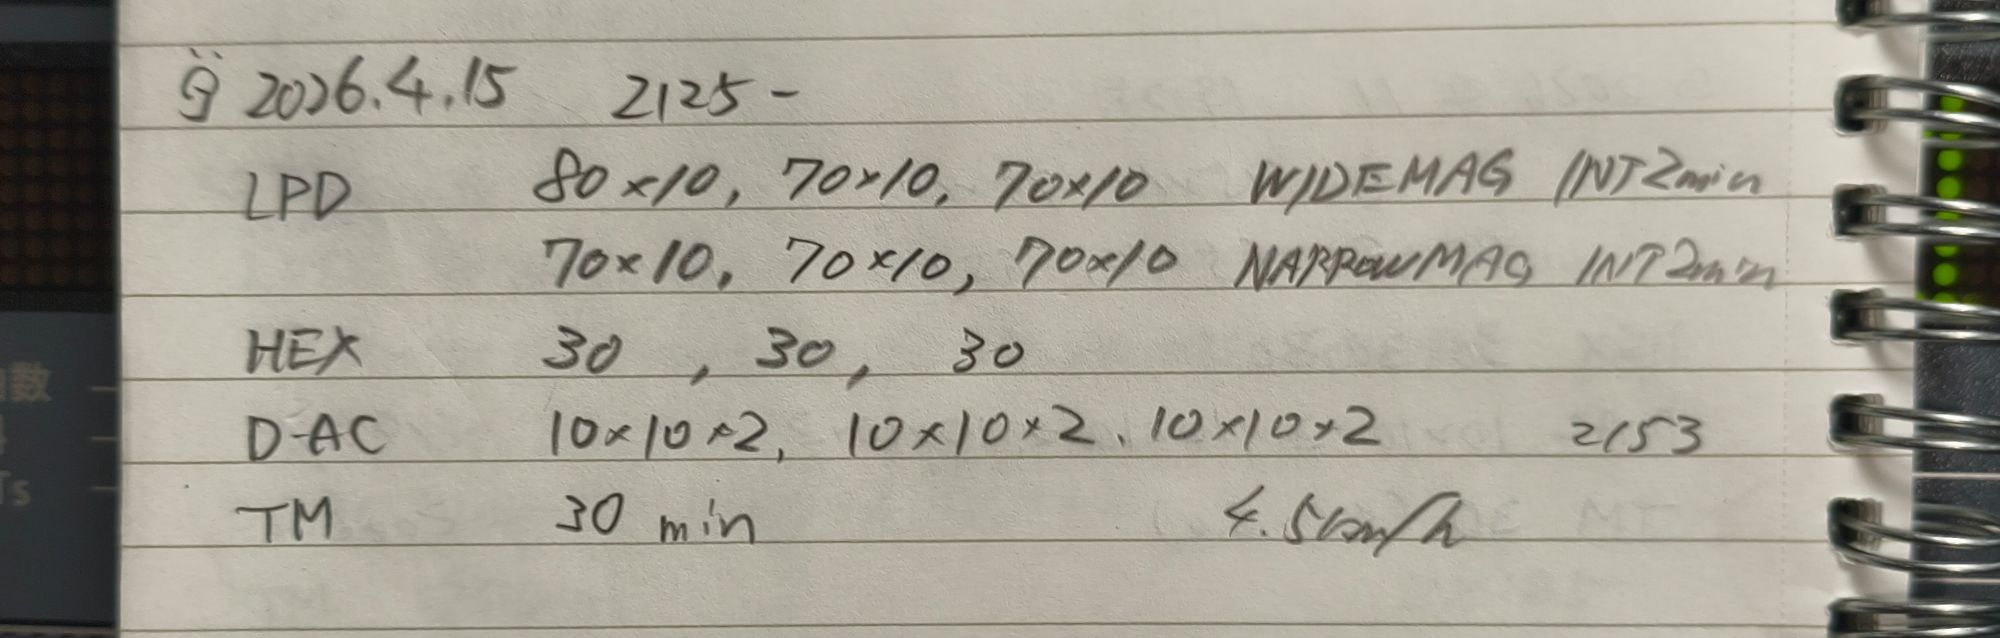 2026.4.15 2125-
LPD 80×10, 70×10, 70×10 WIDEMAG INT2min
70×10, 70×10, 70×10 NARROWMAG INT2min
HEX 30, 30, 30
D-AC 10×10×2, 10×10×2, 10×10×2 2153
TM 30 min 4.5km/h
数
Ts